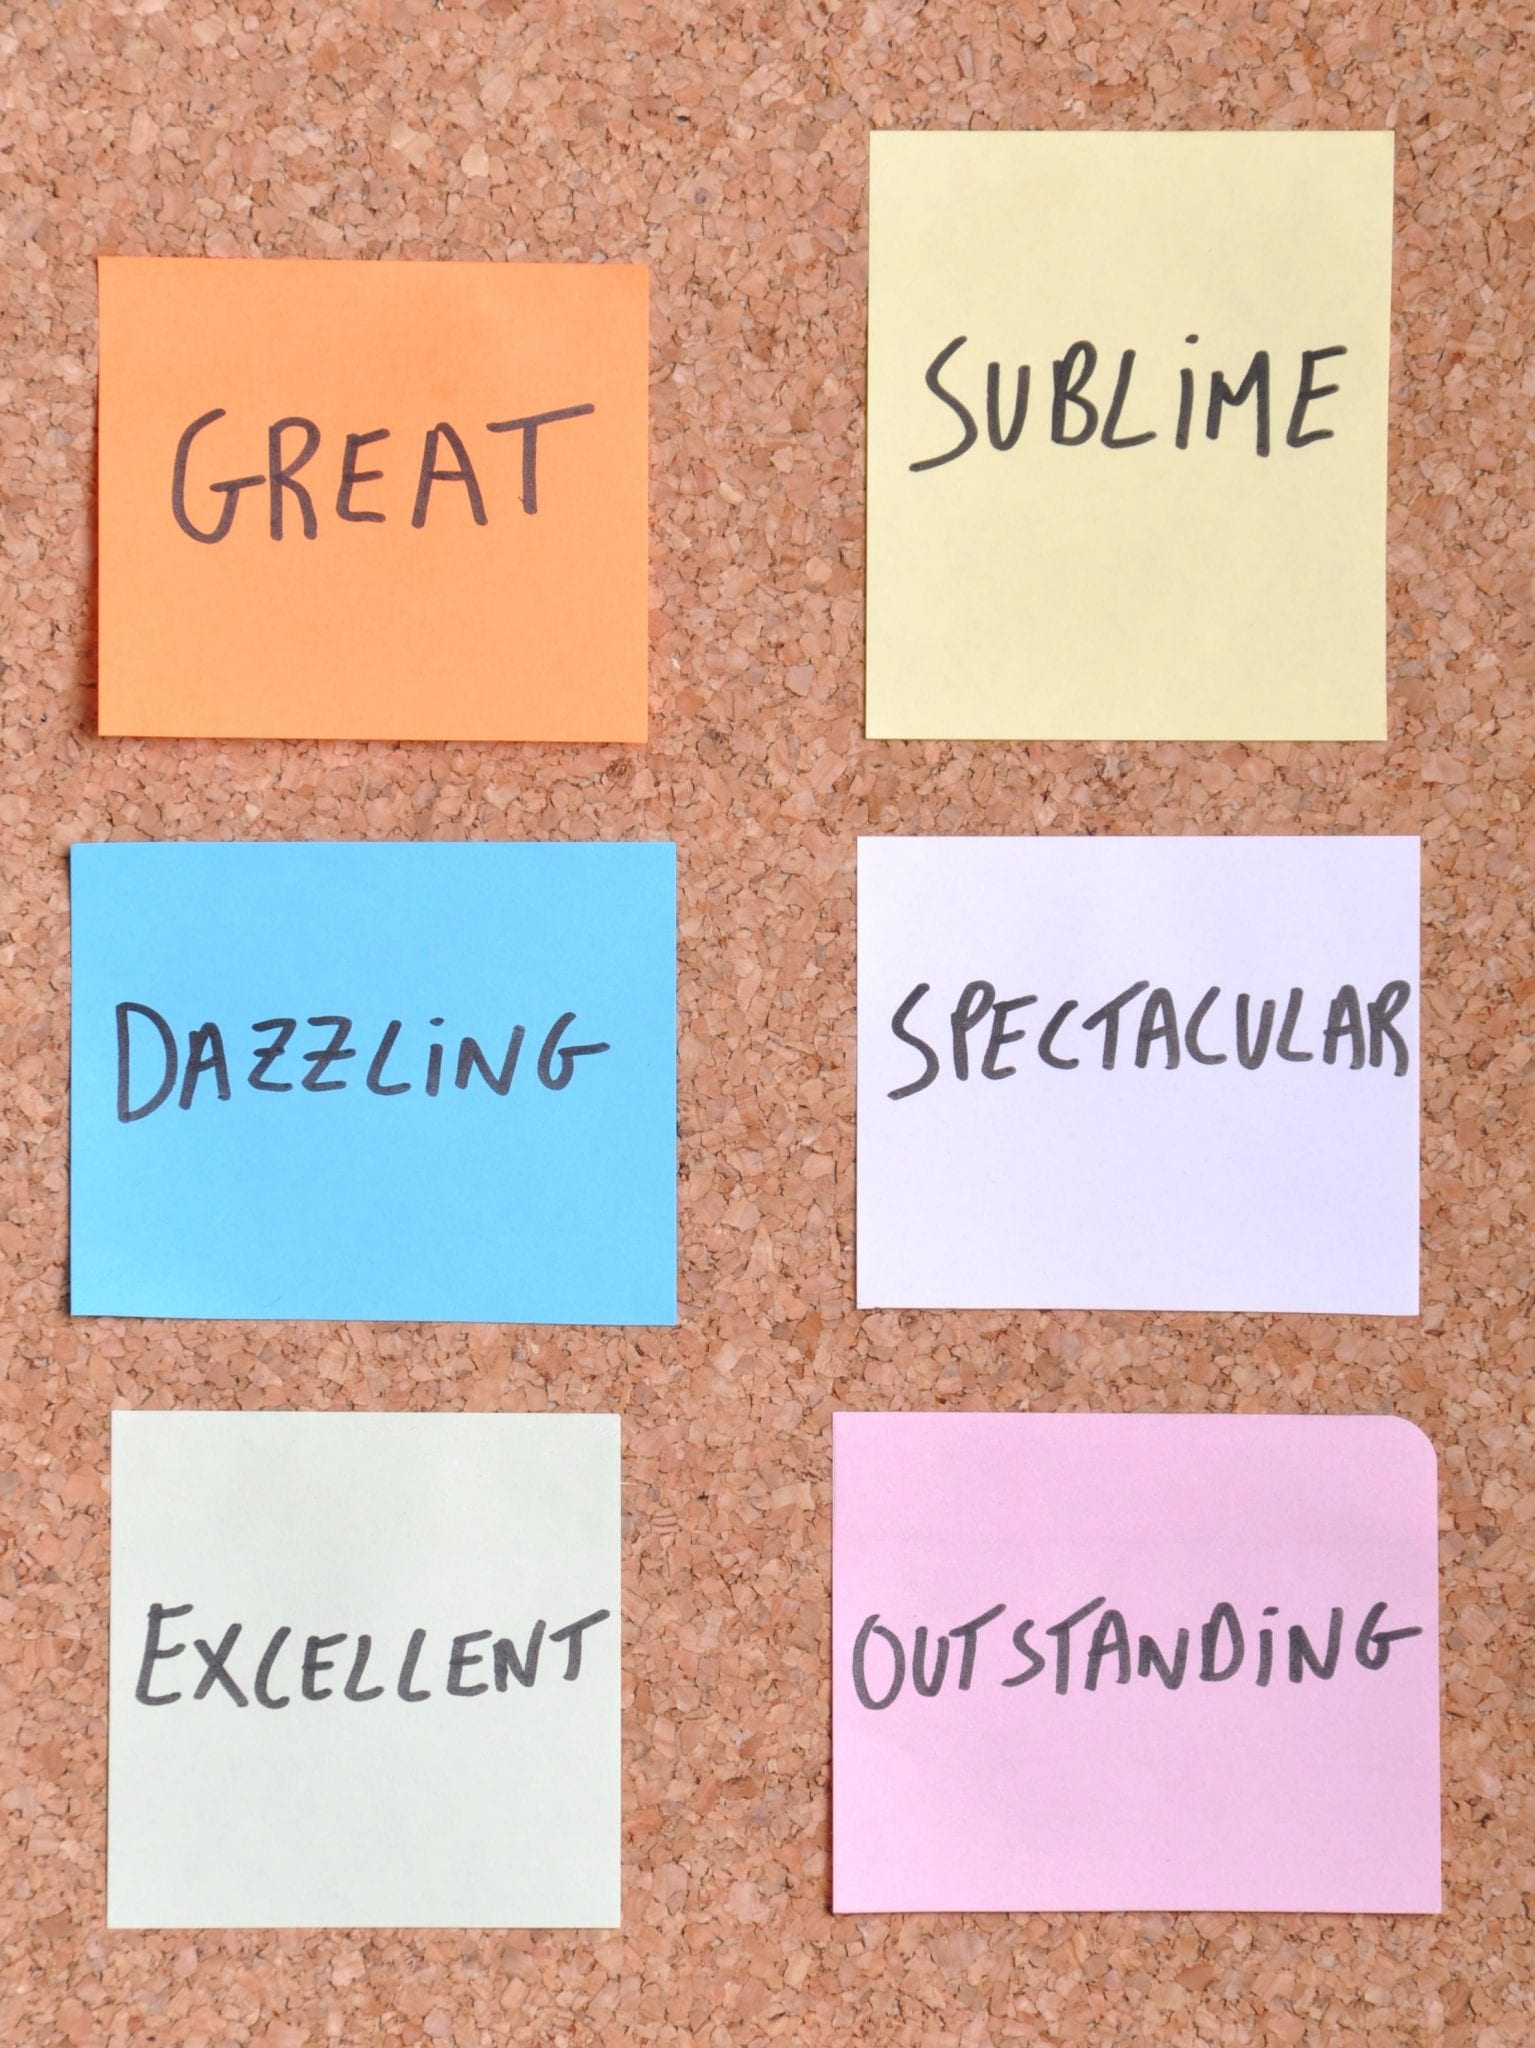 GREAT
SUBLiME
DAZZLiNG
SPECTACULAR
EXCELLENT
OUTSTANDiNG